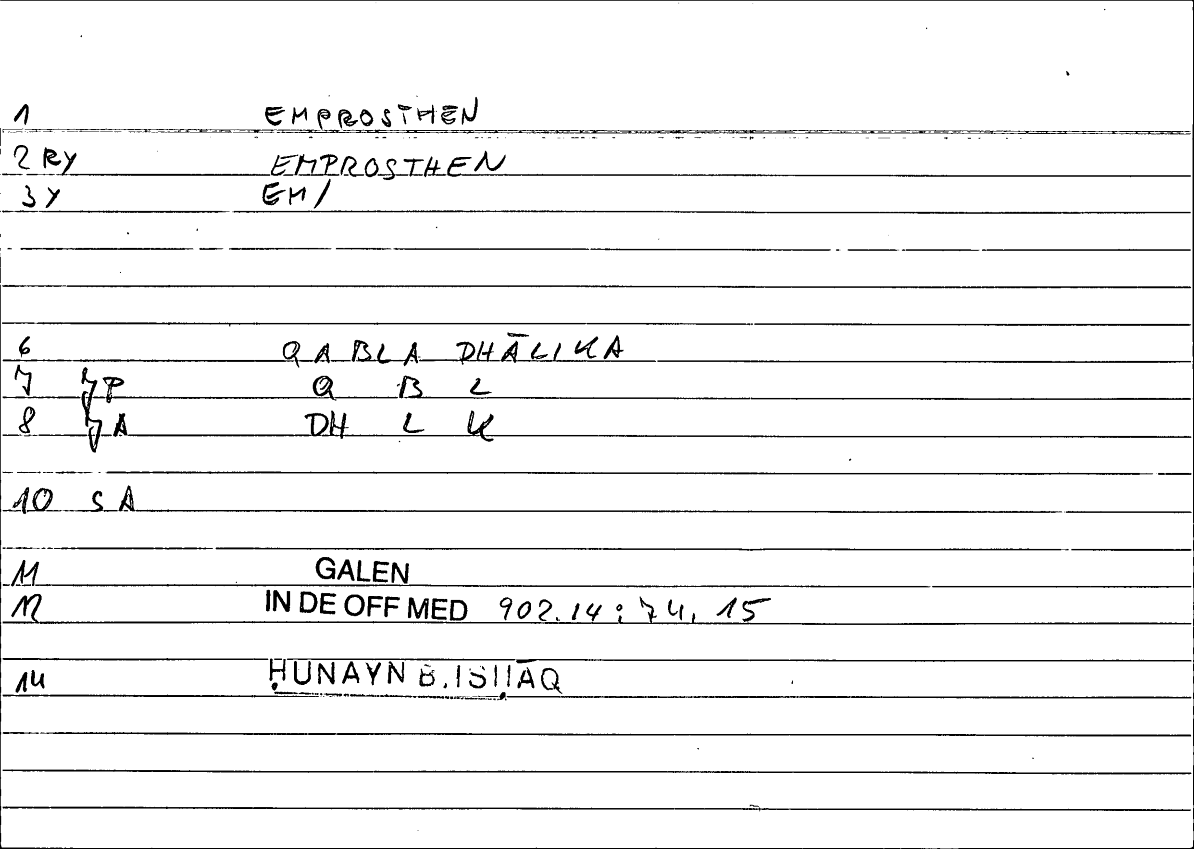 1 EMPROSTHEN
2 RY EMPROSTHEN
3 Y EM/
6 QABLA DHĀLIKA
7 P Q B L
8 A DH L K
10 S A
11 GALEN
12 IN DE OFF MED 902.14 : 74, 15
14 ḤUNAYN B. ISḤĀQ